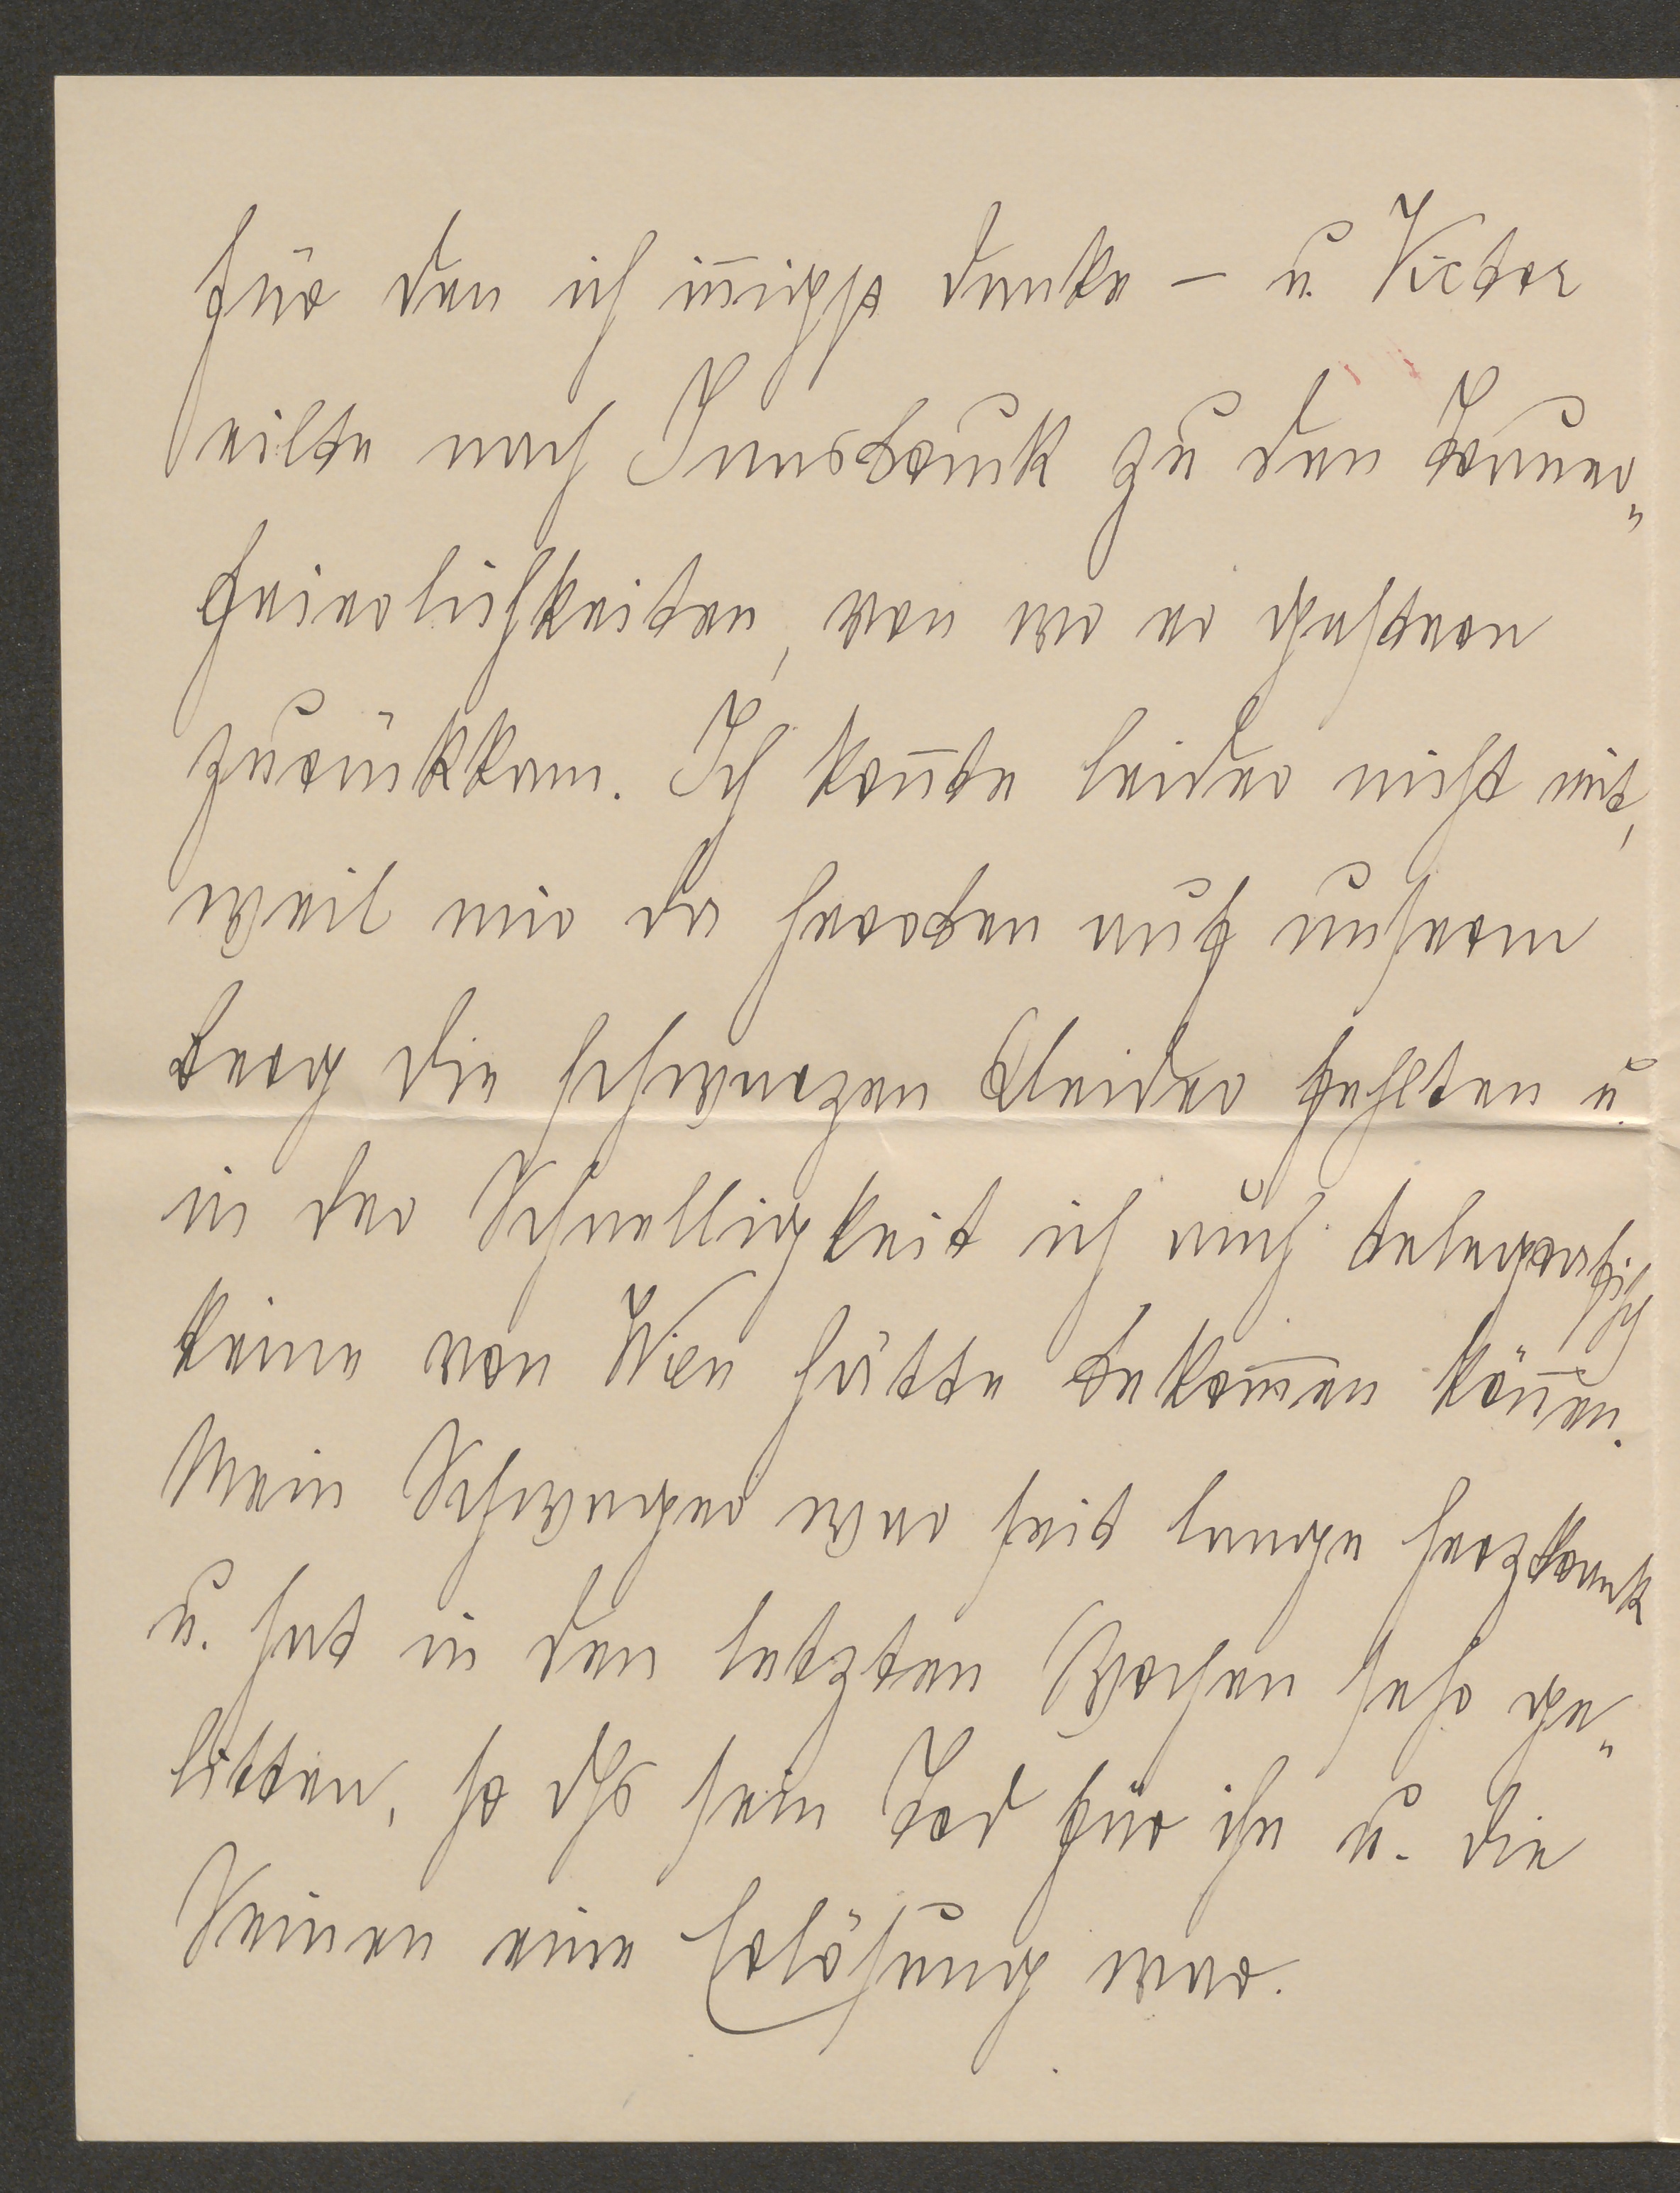 für den ich iñigst danke – u. Victor
eilte nach Innsbruck zu den Trauer„
feierlichkeiten, von wo er gestern
zurückkam. Ich koñte leider nicht mit,
weil mir da heroben auf unserm
Berg die schwarzen Kleider fehlten u.
in der Schnelligkeit ich auch telegrafisch
keine von Wien hätte bekom̄en köñen.
Mein Schwager war seit lange herzkrank
u. hat in den letzten Wochen sehr ge„
litten, so dß sein Tod für ihn u. die
Seinen eine Erlösung war.